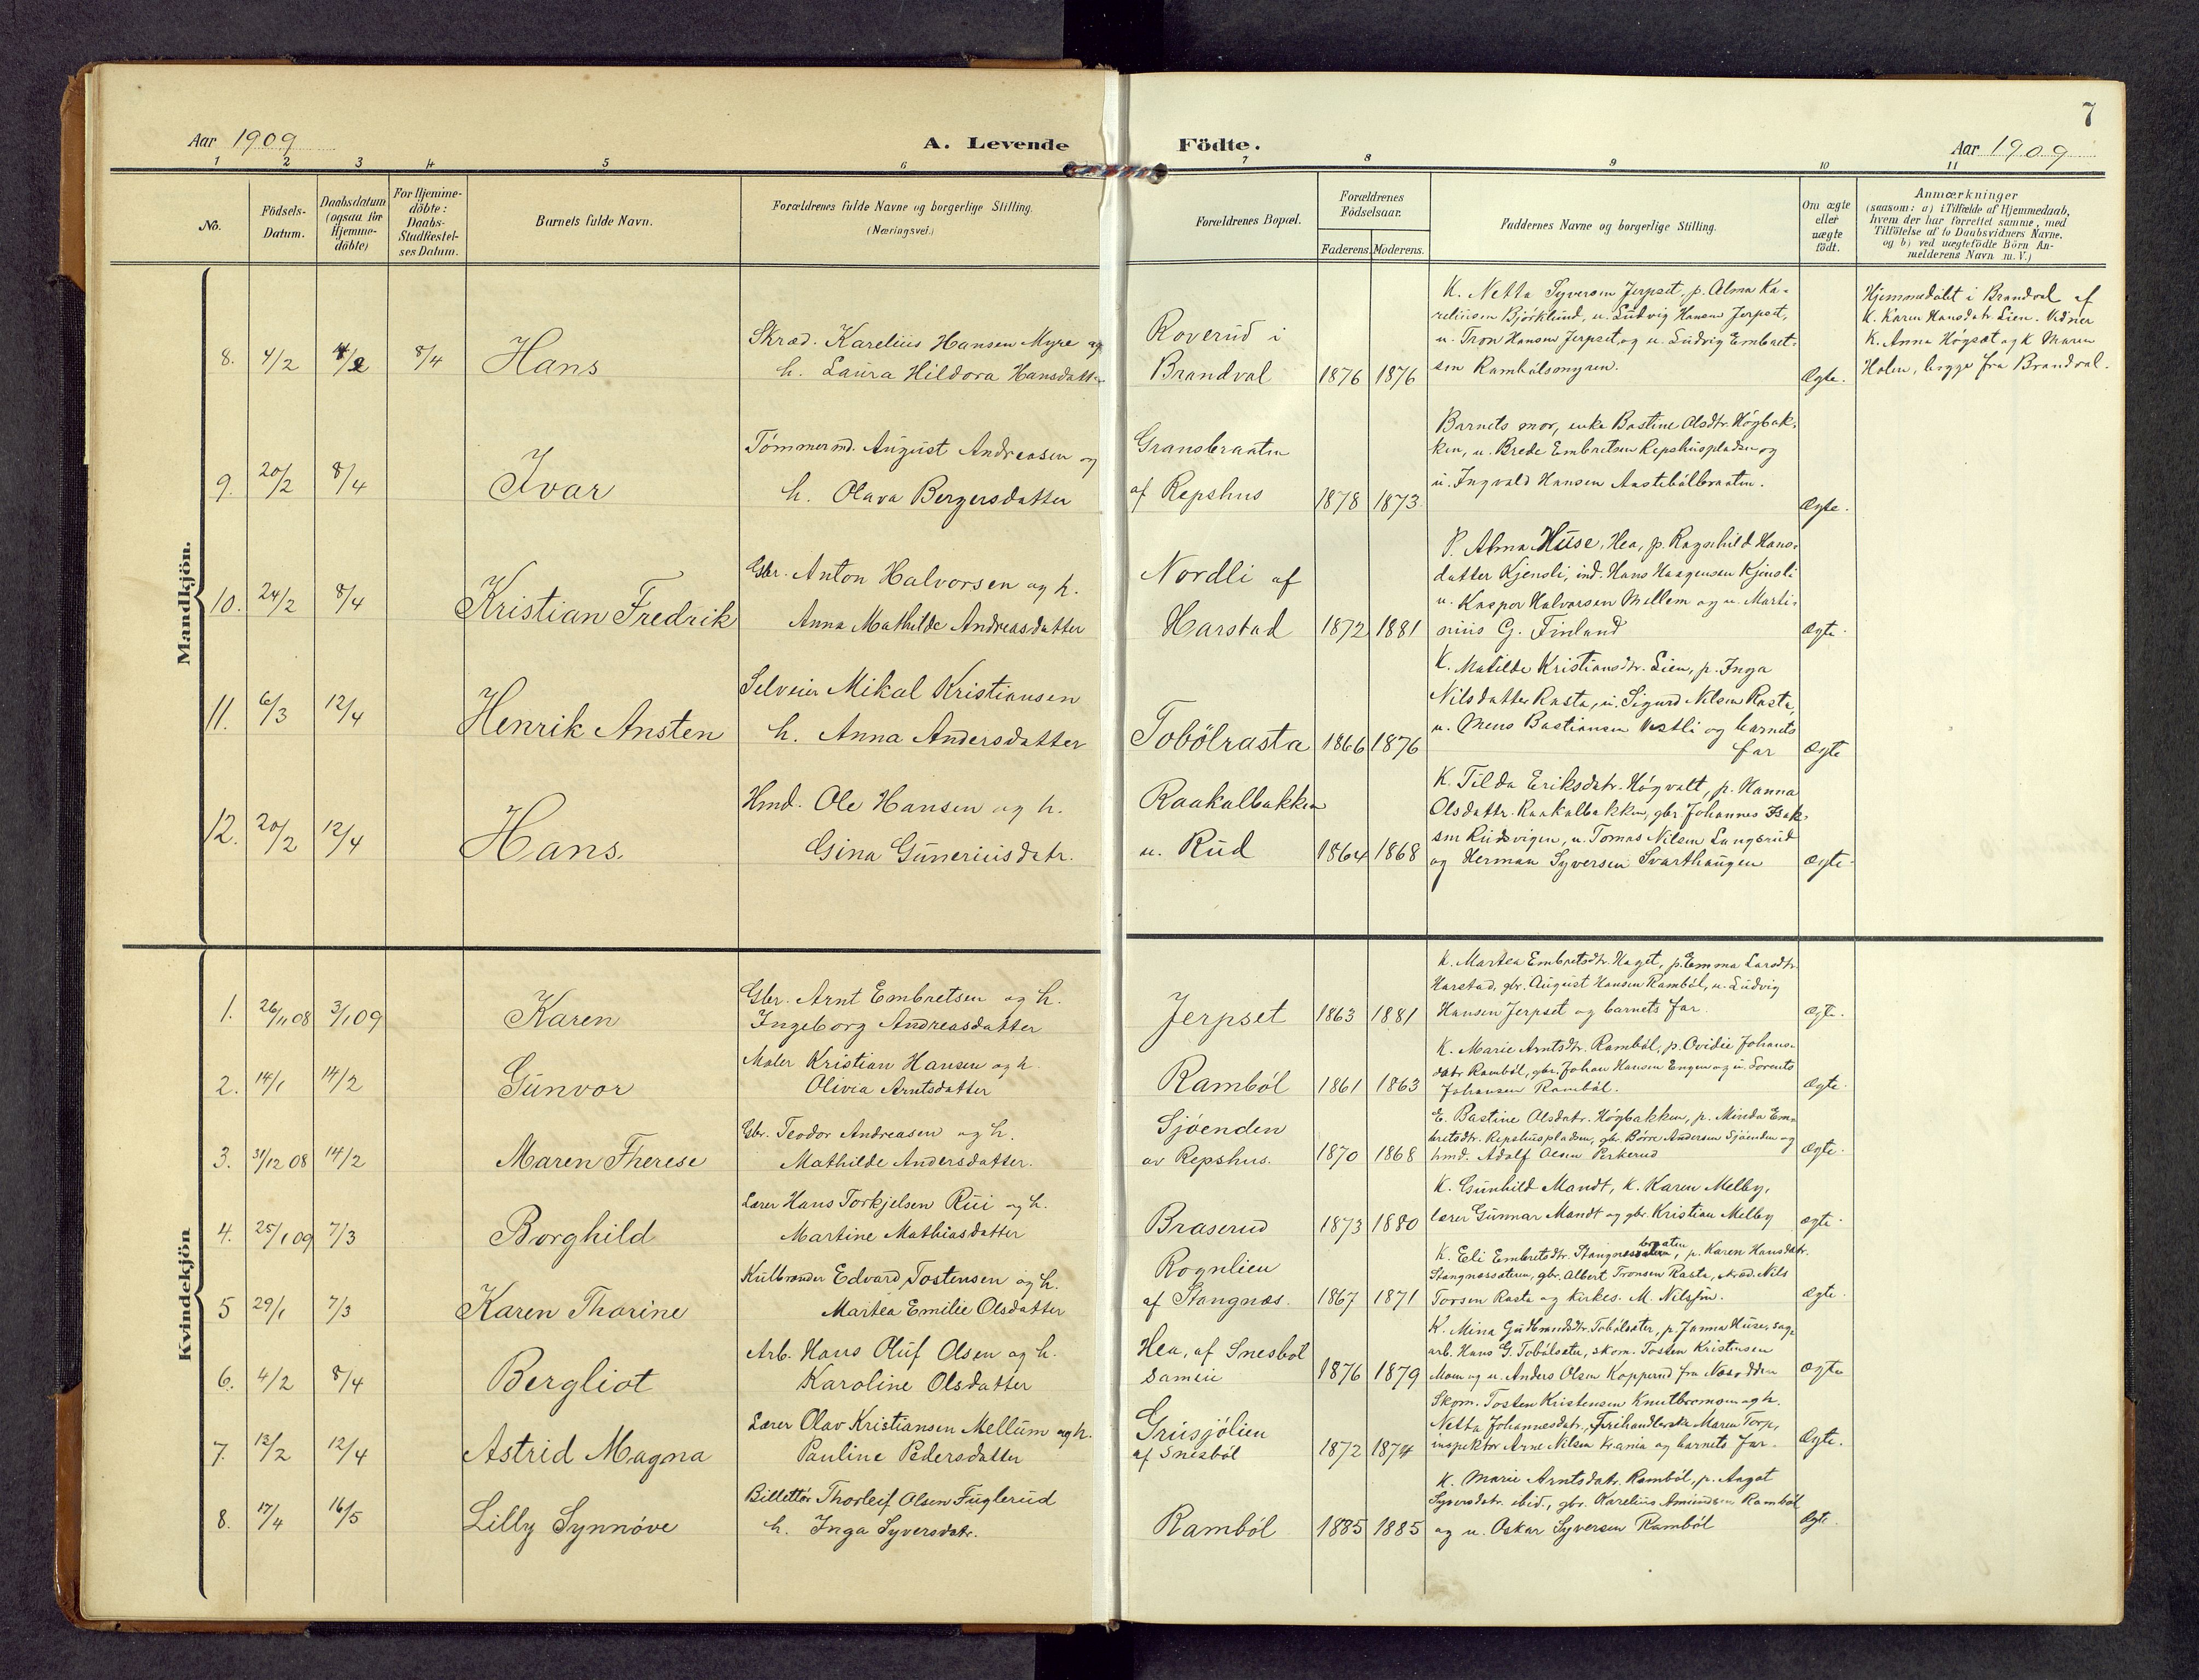 7
Aar 1909
A. Levende Födte.
Aar 1909
1 2 3 4 5 6 7 8 9 10 11
No.
Födsels-
Datum.
Daabsdatum
(ogsaa for
Hjemme-
döbte)
For Hjemme-
döbte:
Daabs-
Stadfæstel-
ses Datum.
Barnets fulde Navn.
Forældrenes fulde Navne og borgerlige Stilling.
(Næringsvei.)
Forældrenes Bopæl.
Forældrenes
Födselsaar.
Faderens. Moderens.
Faddernes Navne og borgerlige Stilling.
Om ægte
eller
uægte
födt.
Anmærkninger
(saasom: a) i Tilfælde af Hjemmedaab,
hvem der har forrettet samme, med
Tilföielse af to Daabsvidners Navne.
og b) ved uægtefödte Börn An-
melderens Navn m. V.)
Mandkjön.
8. 4/2 4/2 8/4 Hans
Skræd. Karelius Hansen Myre og
h. Laura Hildora Hansdatter
Roverud i
Brandval
1876 1876
K. Netta Syversen Jerpset, p. Alma Ka-
reliusen Björklund, u. Ludvig Hansen Jerpset,
u. Tron Hansen Jerpset og u. Ludvig Embret-
sen Rambölsmyren.
Ægte.
Hjemmedöbt i Brandval af
K. Karen Hansdatr. Lien. Vidner
K. Anna Högset og K Maren
Holen, begge fra Brandval.
9. 20/2 8/4 Ivar
Tömmermd. August Andreasen og
h. Olava Bergersdatter
Gransbraaten
af Repshus
1878 1873
Barnets mor, enke Bastine Olsdtr. Högbak-
ken, u. Brede Embretsen Repshuspladsen og
u. Ingvald Hansen Aastebölbraaten.
Ægte.
10. 24/2 8/4 Kristian Fredrik
Gbr. Anton Halvorsen og h.
Anna Mathilde Andreasdatter
Nordli af
Harstad
1872 1881
P. Alma Huse, Hea, p. Ragnhild Hans-
datter Kjensli, ind. Hans Haagensen Kjensli
u. Kaspor Halvorsen Mellem og u. Marti-
nius G. Finland
Ægte.
11. 6/3 12/4 Henrik Ansten
Selveier Mikal Kristiansen
h. Anna Andersdatter
Tobölrasta
1866 1876
K. Matilde Kristiansdtr. Lien, p. Inga
Nilsdatter Rasta, u. Sigurd Nilsen Rasta,
u. Mens Bastiansen Vestli og barnets
far
Ægte
12. 20/2 12/4 Hans.
Hmd. Ole Hansen og h.
Gina Guneriusdatr.
Raakalbakken
u. Rud
1864 1868
K. Tilda Eriksdatr. Högvalt, p. Hanna
Olsdattr. Raakalbakken, gbr. Johannes Isak-
sen Rudsvigen, u. Tomas Nilsen Langsrud
og Herman Syversen Svarthaugen
Ægte.
Kvindekjön
1. 26/11 08 3/1 09 Karen
Gbr. Arnt Embretsen og h.
Ingeborg Andreasdatter
Jerpset
1863 1881
K. Martea Embretsdtr. Haget, p. Emma Larsdtr.
Harstad, gbr. August Hansen Ramböl, u. Ludvig
Hansen Jerpset og barnets far.
Ægte.
2. 14/1 14/2 Gunvor
Maler Kristian Hansen og h.
Olivia Arntsdatter
Ramböl
1861 1863
K. Marie Arntsdtr. Ramböl, p. Ovidie Johans-
datr. Ramböl, gbr. Johan Hansen Engen og u. Lorents
Johansen Ramböl.
Ægte.
3. 31/12 08 14/2 Maren Therese
Gbr. Teodor Andreasen og h.
Mathilde Andersdatter.
Sjöenden
av Repshus.
1870 1868
E. Bastine Olsdatr. Högbakken, p. Minda Em-
bretsdtr. Repshuspladsen, gbr. Börre Andersen Sjöenden og
hmd. Adolf Olsen Perkerud
Ægte.
4. 25/1 09 7/3 Borghild
Lærer Hans Torkjelsen Rui og h.
Martine Mathiasdatter
Braserud
1873 1880
K. Gunhild Mandt, K. Karen Melby,
lærer Gunnar Mandt og gbr. Kristian Melby
ægte.
5 29/1 7/3 Karen Thorine
Kulbrænder Edvard Tostensen og h.
Martea Emilie Olsdatter
Rognlien
af Stangnæs.
1867 1871
K. Eli Embretsdtr. Stangnæsbraaten, p. Karen Hansdatr.
Stangnæssæteren, gbr. Albert Tronsen Rasta, skræd. Nils
Torsen Rasta og kirkes. M. Nilssen.
Ægte.
6. 4/2 8/4 Bergliot
Arb. Hans Oluf Olsen og h.
Karoline Olsdatter
Hea, af Snesbol
1876 1879
K. Mina Gudbrandsdtr. Tobölsæter, p. Janna Huse, sag-
arb. Hans G. Tobölsæter, skom. Tosten Kristensen
Moen og u. Anders Olsen Kopperud fra Næsodden
Ægte
7. 12/2 12/4 Astrid Magna
Lærer Olav Kristiansen Mellum og h.
Pauline Pedersdatter
Grusjölien
af Snesböl
1872 1874
Skom. Tosten Kristensen Knutbromoen og h.
Netta Johannesdatr., Frihandlerske Maren Torp,
inspektör Arne Nilsen Krania og barnets far.
Ægte.
8. 17/4 16/5 Lilly Synnöve
Billettör Thorleif Olsen Fuglerud
h. Inga Syversdatr.
Ramböl
1885 1885
K. Marie Arntsdatr. Ramböl, p. Aagot
Syversdatr. ibid., gbr. Karelius Amundsen Ramböl
og u. Oskar Syversen Ramböl
Ægte.